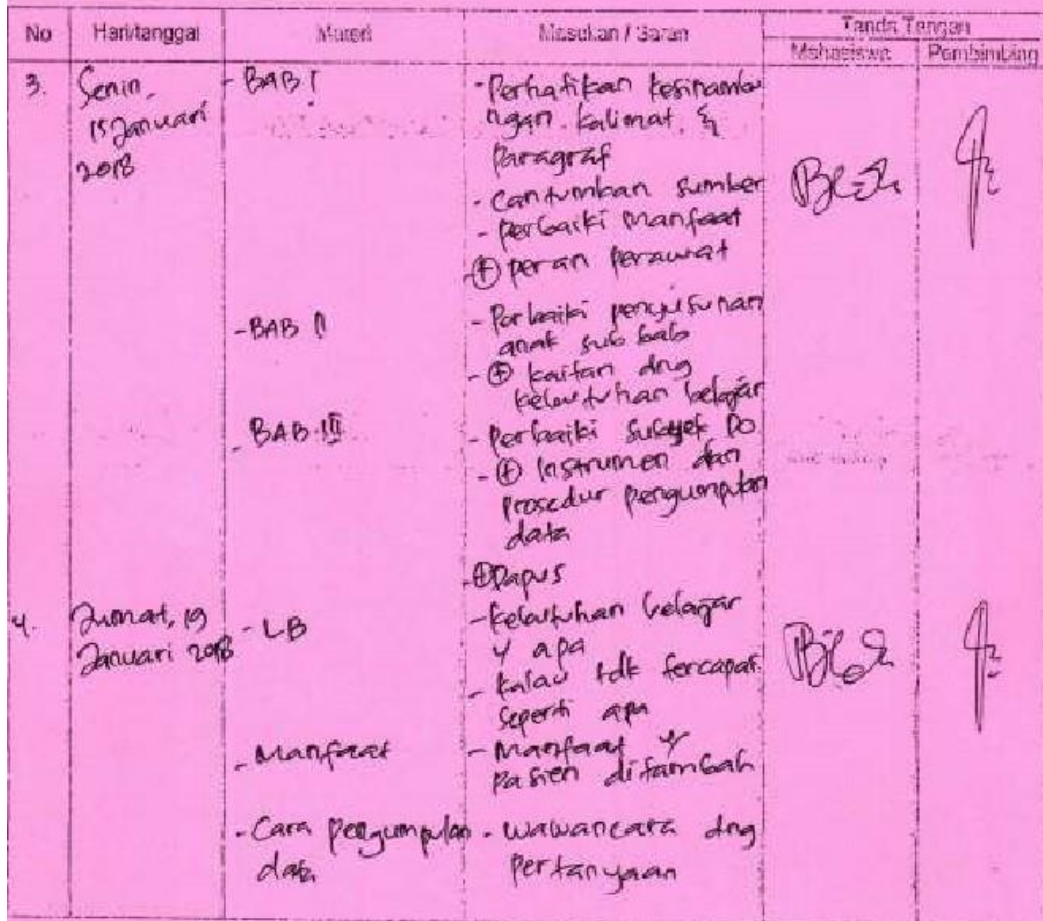 No Hari/tanggal Materi Masukan / Saran Tanda Tangan
Mahasiswa Pembimbing
3. Senin, - BAB I - Perhatikan kesinambu
15 Januari ngan kalimat &
2018 Paragraf
- Cantumkan sumber
- Perbaiki manfaat
⊕ peran perawat
- BAB II - Perbaiki penyusunan
anak sub bab
- ⊕ kaitan dng
kebutuhan belajar
- BAB III - Perbaiki subyek DO
- ⊕ Instrumen dan
prosedur pengumpulan
data
- ⊕ Dapus
4. Jumat, 19 - LB - kebutuhan belajar
Januari 2018 y apa
- kalau tdk tercapai
seperti apa
- Manfaat - Manfaat y
pasien ditambah
- Cara pengumpulan - wawancara dng
data pertanyaan